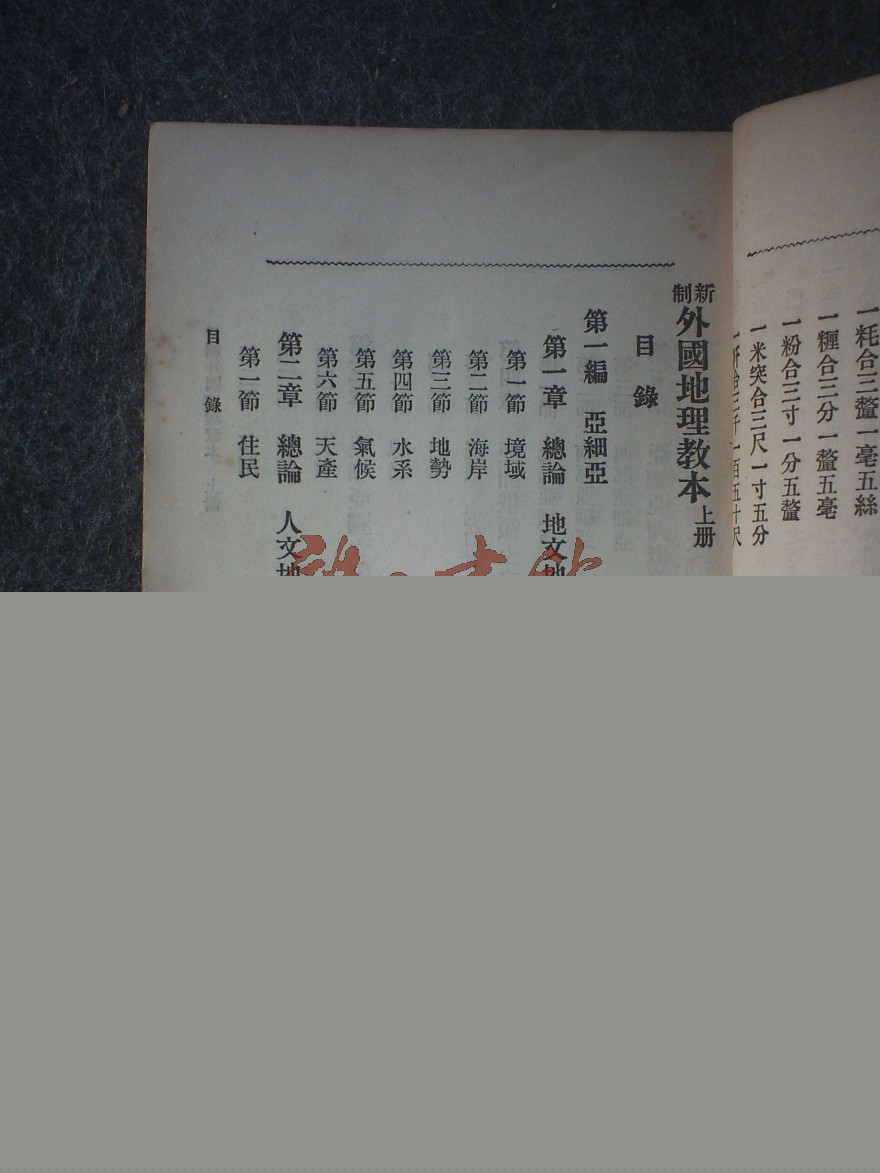 一粍合三釐一毫五絲
一糎合三分一釐五毫
一粉合三寸一分五釐
一米突合三尺一寸五分
一百五十尺
新制外國地理教本 上册
目錄
第一編 亞細亞
第一章 總論 地文地
第一節 境域
第二節 海岸
第三節 地勢
第四節 水系
第五節 氣候
第六節 天產
第二章 總論 人文地
第一節 住民
目錄